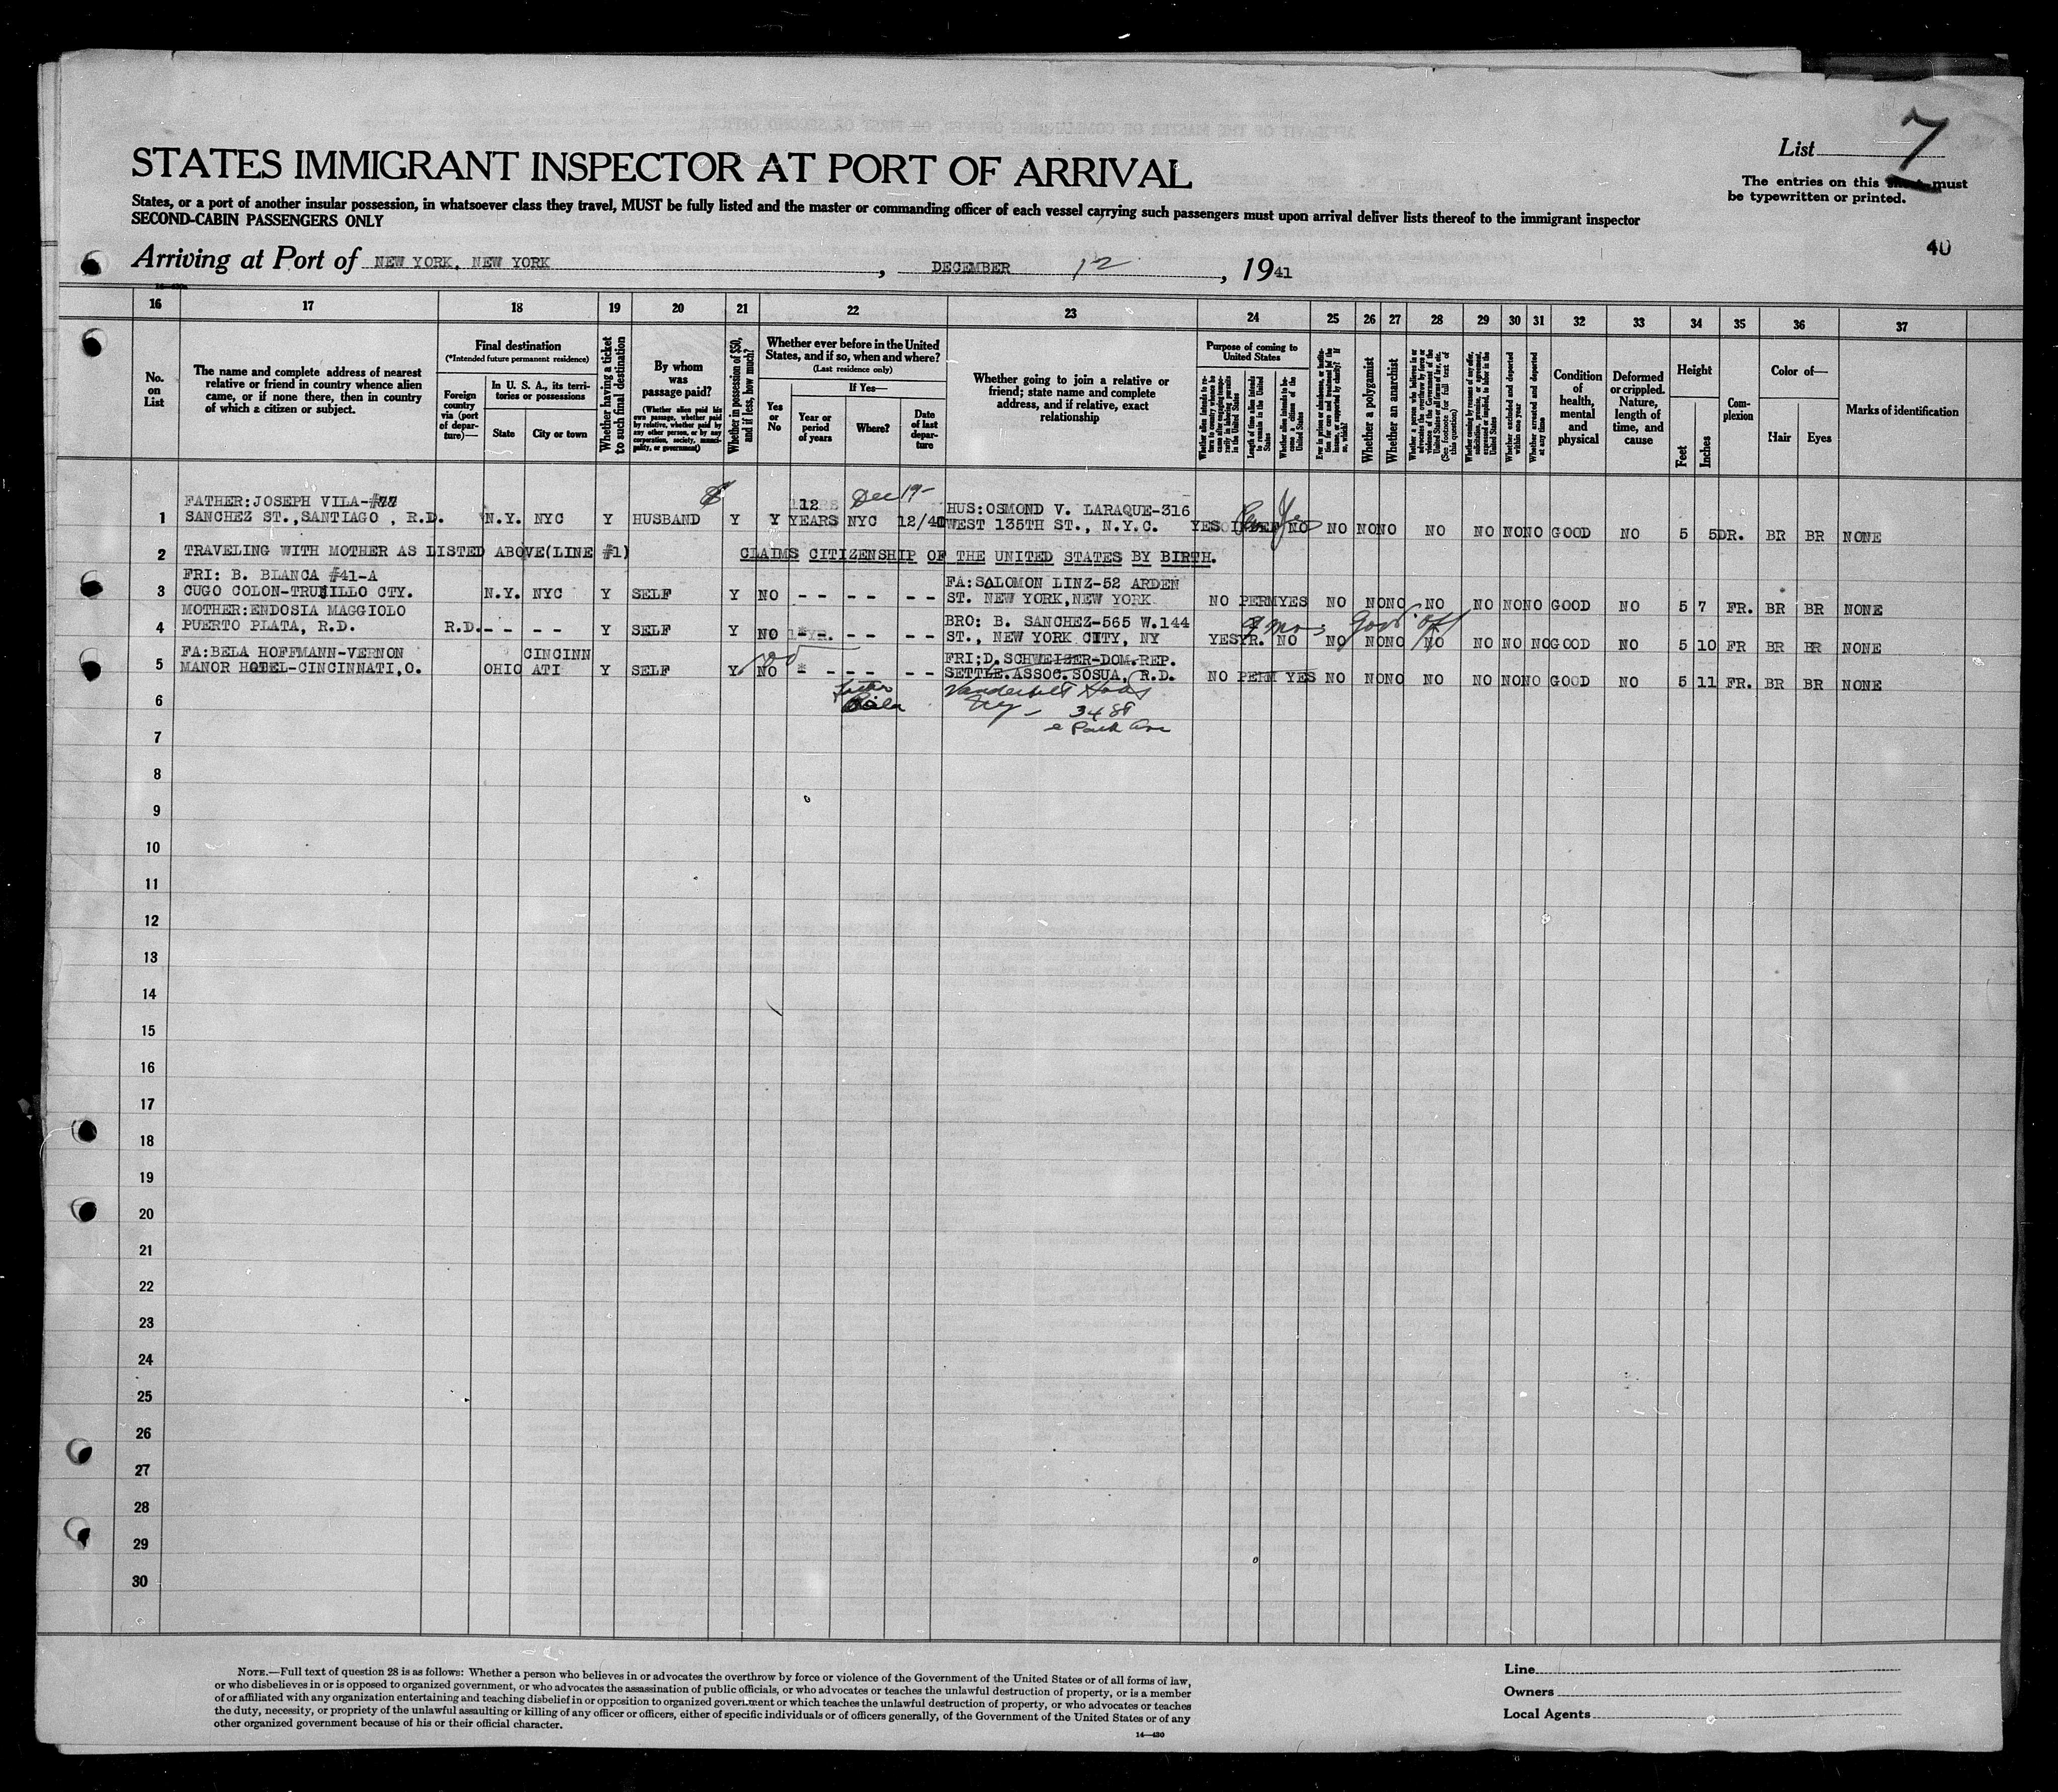 List 7
STATES IMMIGRANT INSPECTOR AT PORT OF ARRIVAL
The entries on this sheet must
be typewritten or printed.
States, or a port of another insular possession, in whatsoever class they travel, MUST be fully listed and the master or commanding officer of each vessel carrying such passengers must upon arrival deliver lists thereof to the immigrant inspector
SECOND-CABIN PASSENGERS ONLY
40
Arriving at Port of NEW YORK, NEW YORK, DECEMBER 12, 1941
16 17 18 19 20 21 22 23 24 25 26 27 28 29 30 31 32 33 34 35 36 37
No. on List
The name and complete address of nearest relative or friend in country whence alien came, or if none there, then in country of which a citizen or subject.
Final destination
(*Intended future permanent residence)
Foreign country via (port of departure)—
In U. S. A., its territories or possessions
State
City or town
Whether having a ticket to such final destination
By whom was passage paid?
(Whether alien paid his own passage, whether paid by relative, whether paid by any other person, or by any corporation, society, municipality, or government)
Whether in possession of $50, and if less, how much?
Whether ever before in the United States, and if so, when and where?
(Last residence only)
Yes or No
If Yes—
Year or period of years
Where?
Date of last departure
Whether going to join a relative or friend; state name and complete address, and if relative, exact relationship
Purpose of coming to United States
Whether alien intends to return to country whence he came after engaging temporarily in laboring pursuits in the United States
Length of time alien intends to remain in the United States
Whether alien intends to become a citizen of the United States
Ever in prison or almshouse, or institution for care and treatment of the insane, or supported by charity? If so, which?
Whether a polygamist
Whether an anarchist
Whether a person who believes in or advocates the overthrow by force or violence of the Government of the United States or all forms of law, etc. (See footnote for full text of this question)
Whether coming by reason of any offer, solicitation, promise, or agreement, expressed or implied, to labor in the United States
Whether excluded and deported within one year
Whether arrested and deported at any time
Condition of health, mental and physical
Deformed or crippled. Nature, length of time, and cause
Height
Feet
Inches
Complexion
Color of—
Hair
Eyes
Marks of identification
FATHER:JOSEPH VILA-#77 12 Dec 19- HUS:OSMOND V. LARAQUE-316
1 SANCHEZ ST.,SANTIAGO , R.D. N.Y. NYC Y HUSBAND Y Y YEARS NYC 12/40 WEST 135TH ST., N.Y.C. YES INDEF NO NO NO NO NO NO NO NO GOOD NO 5 5 DR. BR BR NONE
2 TRAVELING WITH MOTHER AS LISTED ABOVE(LINE #1) CLAIMS CITIZENSHIP OF THE UNITED STATES BY BIRTH.
FRI: B. BLANCA #41-A FA:SALOMON LINZ-52 ARDEN
3 CUGO COLON-TRUJILLO CTY. N.Y. NYC Y SELF Y NO - - - - - - ST. NEW YORK,NEW YORK NO PERM YES NO NO NO NO NO NO NO GOOD NO 5 7 FR. BR BR NONE
MOTHER:ENDOSIA MAGGIOLO BRO: B. SANCHEZ-565 W.144 9 mos
4 PUERTO PLATA, R.D. R.D. - - - - Y SELF Y NO - - - - - - ST., NEW YORK CITY, NY YES YR. NO NO NO NO NO NO NO NO GOOD NO 5 10 FR BR BR NONE
FA:BELA HOFFMANN-VERNON CINCINN FRI;D. SCHWEISER-DOM.REP.
5 MANOR HOTEL-CINCINNATI,O. OHIO ATI Y SELF Y NO * - - - - - SETTLE.ASSOC.SOSUA, R.D. NO PERM YES NO NO NO NO NO NO NO GOOD NO 5 11 FR. BR BR NONE
6 Vanderbilt
NY - 34 St
7 Park Ave
8
9
10
11
12
13
14
15
16
17
18
19
20
21
22
23
24
25
26
27
28
29
30
NOTE.—Full text of question 28 is as follows: Whether a person who believes in or advocates the overthrow by force or violence of the Government of the United States or of all forms of law,
or who disbelieves in or is opposed to organized government, or who advocates the assassination of public officials, or who advocates or teaches the unlawful destruction of property, or is a member
of or affiliated with any organization entertaining and teaching disbelief in or opposition to organized government or which teaches the unlawful destruction of property, or who advocates or teaches
the duty, necessity, or propriety of the unlawful assaulting or killing of any officer or officers, either of specific individuals or of officers generally, of the Government of the United States or of any
other organized government because of his or their official character.
14—430
Line
Owners
Local Agents